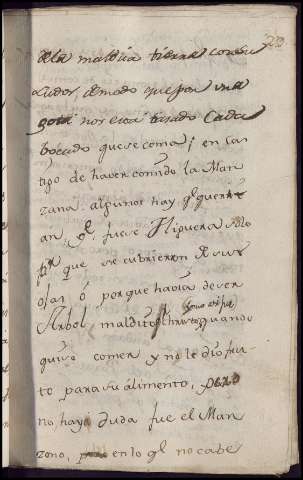 de la maldita tierra con su
sudor, demodo que por una
gota nos está tasado Cada
bocado que se coma; en cas
tigo de haver comido la Man
zana: algunos hay q̃. quer
an, q̃. fuese Higuera solo
p.r que se cubrieron de sus
ojas ó porque havia de ser
Arbol, maldito quando
quiso comer y no le dio fru-
to para su alimento, pero
no hay duda fue el Man
zano, en lo q̃l no cabe